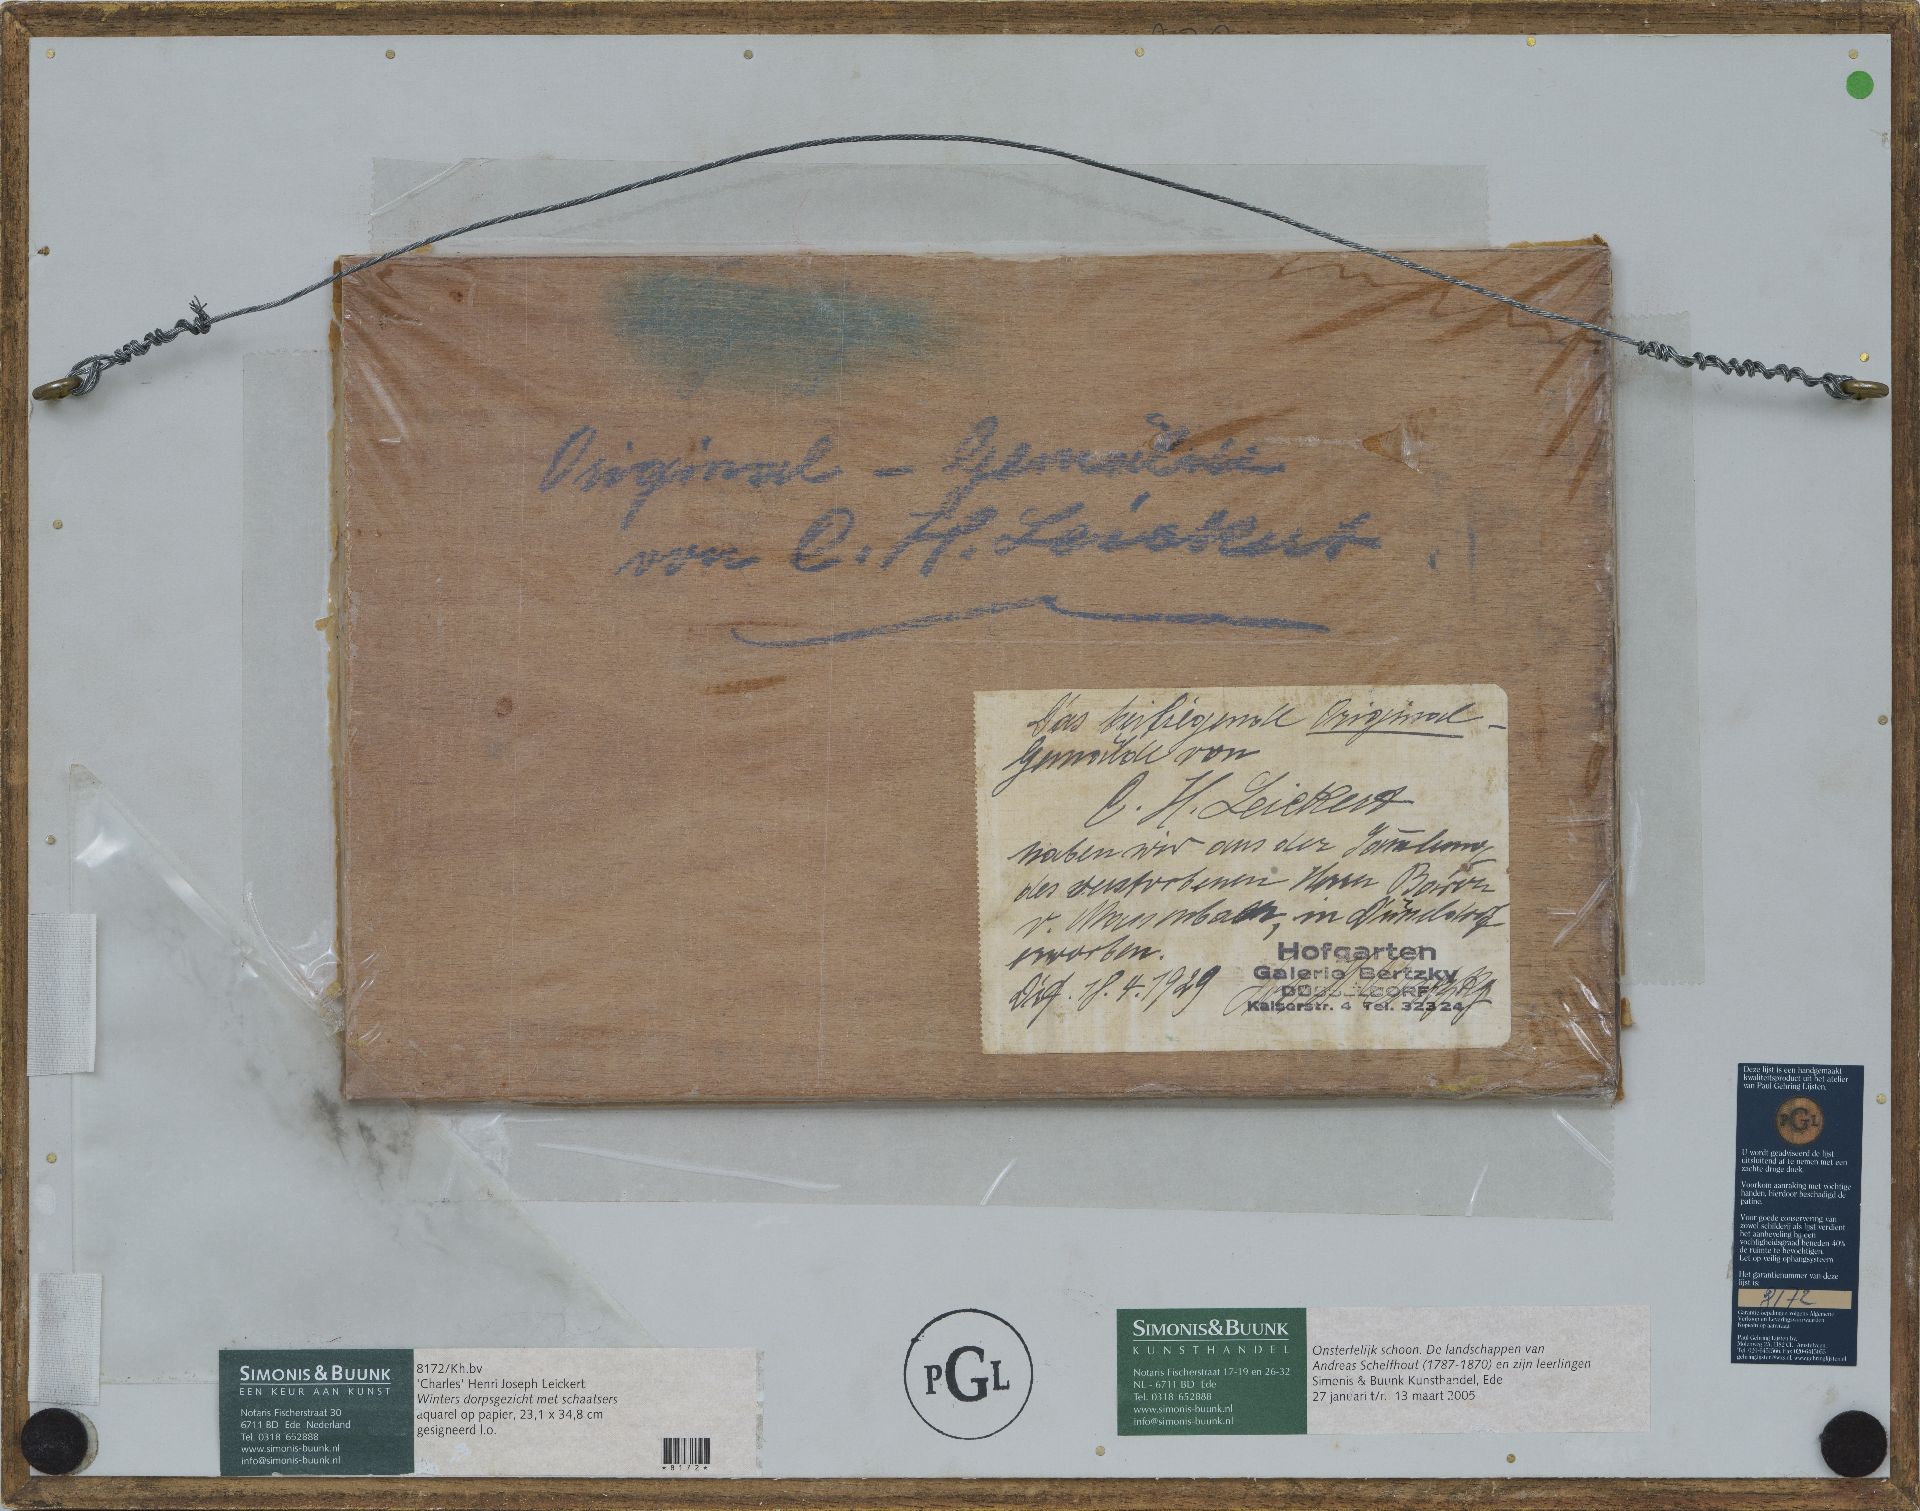 Original – Gemälde
von C. H. Leickert
Das beiliegende Original –
Gemälde von
C. H. Leickert
haben wir aus der Sammlung
des verstorbenen Herrn Baron
v. in Düsseldorf
erworben.
Ddf. 18. 4. 1929
Hofgarten
Galerie Bertzky
DÜSSELDORF
Kaiserstr. 4 Tel. 32324
Deze lijst is een handgemaakt
kwaliteitsproduct uit het atelier
van Paul Gehring Lijsten.
PGL
U wordt geadviseerd de lijst
uitsluitend af te nemen met een
zachte droge doek.
Voorkom aanraking met vochtige
handen, hierdoor beschadigd de
patine.
Voor goede conservering van
zowel schilderij als lijst verdient
het aanbeveling bij een
vochtigheidsgraad beneden 40%
de ruimte te bevochtigen.
Let op veilig ophangsysteem
Het garantienummer van deze
lijst is:
Garantie bepalingen volgens Algemene
Verkoop en Leveringsvoorwaarden
Paul Gehring Lijsten bv.
SIMONIS & BUUNK
EEN KEUR AAN KUNST
Notaris Fischerstraat 30
6711 BD Ede Nederland
Tel. 0318 652888
www.simonis-buunk.nl
info@simonis-buunk.nl
8172/Kh.bv
'Charles' Henri Joseph Leickert
Winters dorpsgezicht met schaatsers
aquarel op papier, 23,1 x 34,8 cm
gesigneerd l.o.
*8172*
PGL
SIMONIS&BUUNK
KUNSTHANDEL
Notaris Fischerstraat 17-19 en 26-32
NL - 6711 BD Ede
Tel. 0318 652888
www.simonis-buunk.nl
info@simonis-buunk.nl
Onsterfelijk schoon. De landschappen van
Andreas Schelfhout (1787-1870) en zijn leerlingen
Simonis & Buunk Kunsthandel, Ede
27 januari t/r. 13 maart 2005